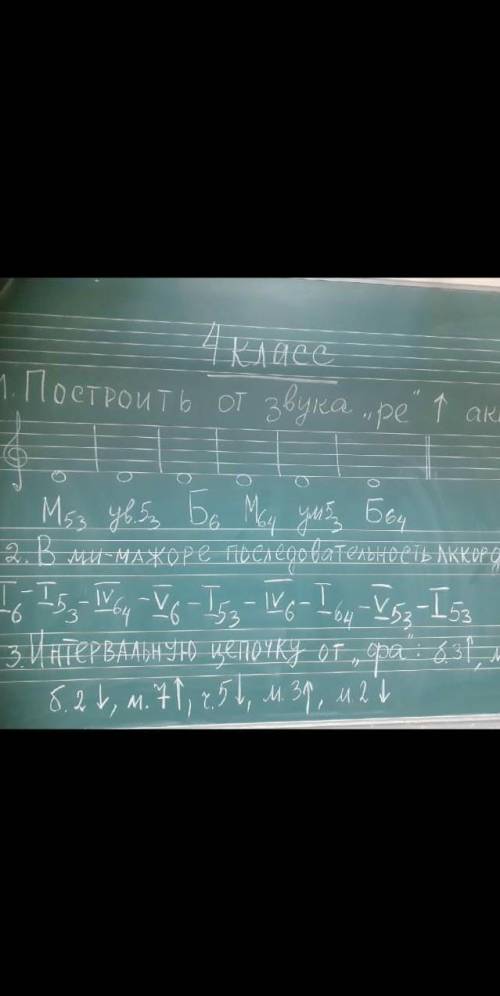 4 класс
1. Построить от звука „ре" ↑ ак
М53 ув.53 Б6 М64 ум53 Б64
2. В ми-мажоре последовательность аккорд
I6 - I53 - IV64 - V6 - I53 - IV6 - I64 - V53 - I53
3. Интервальную цепочку от „фа": б.3↑, м
б.2↓, м.7↑, ч.5↓, м.3↑, м.2↓